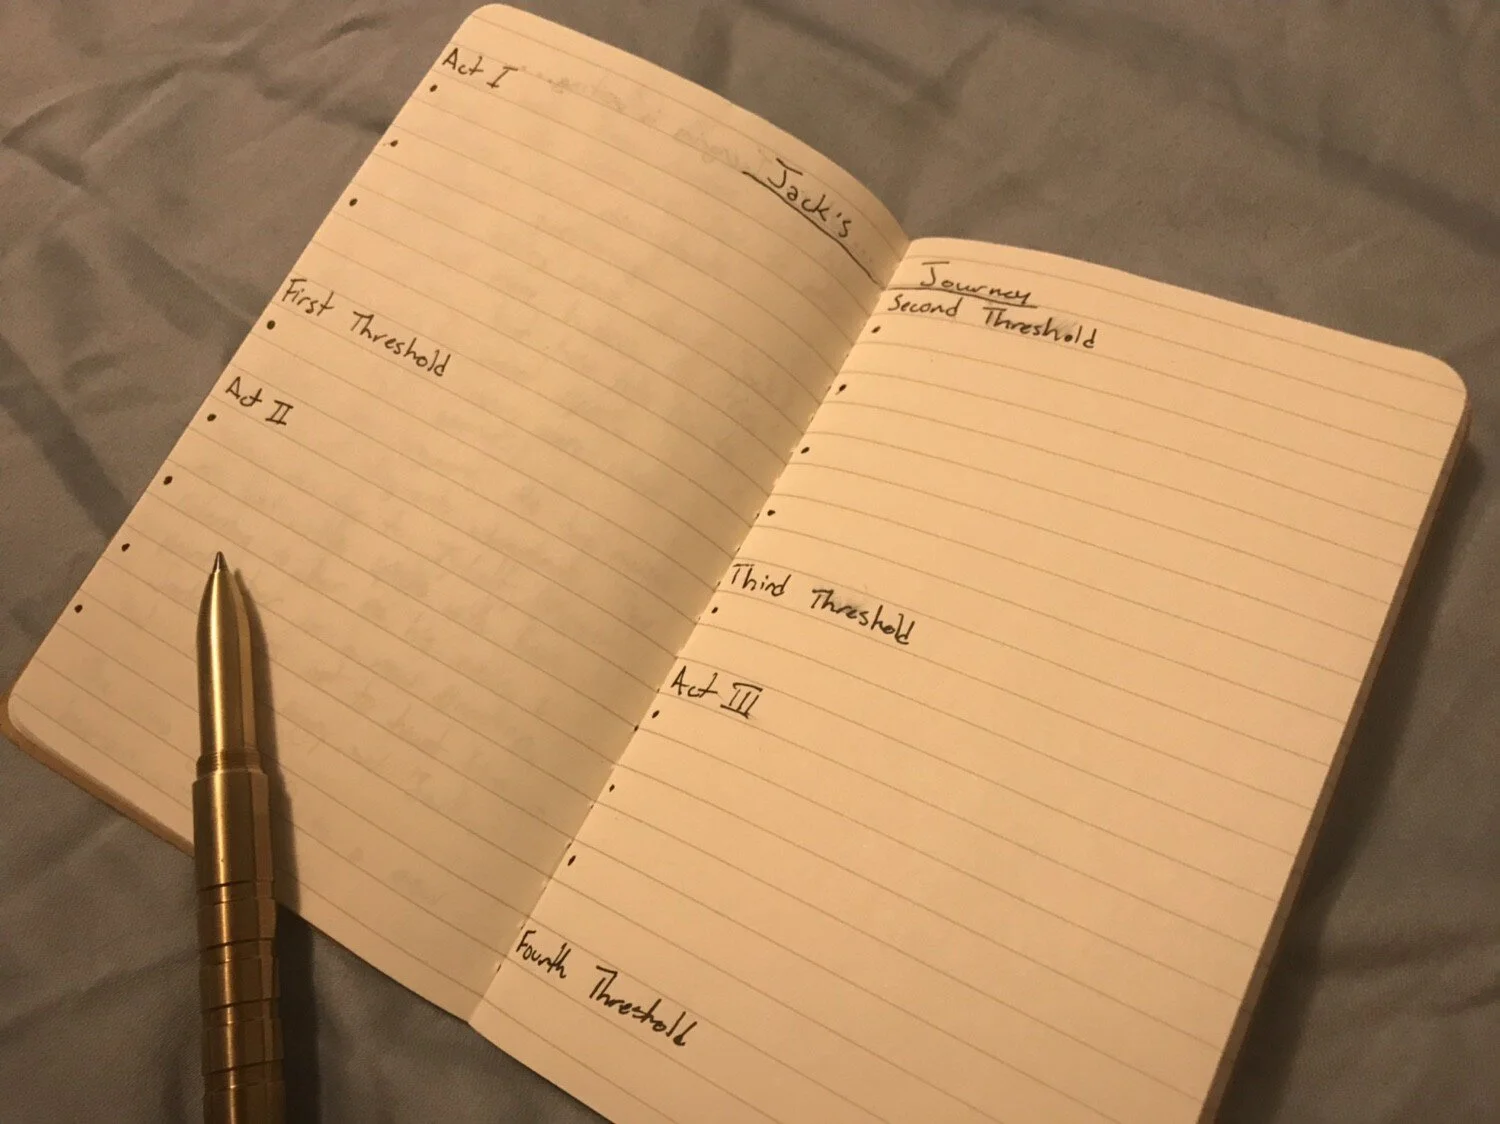 Act I
Jack's
First Threshold
Act II
Journey
Second Threshold
Third Threshold
Act III
Fourth Threshold